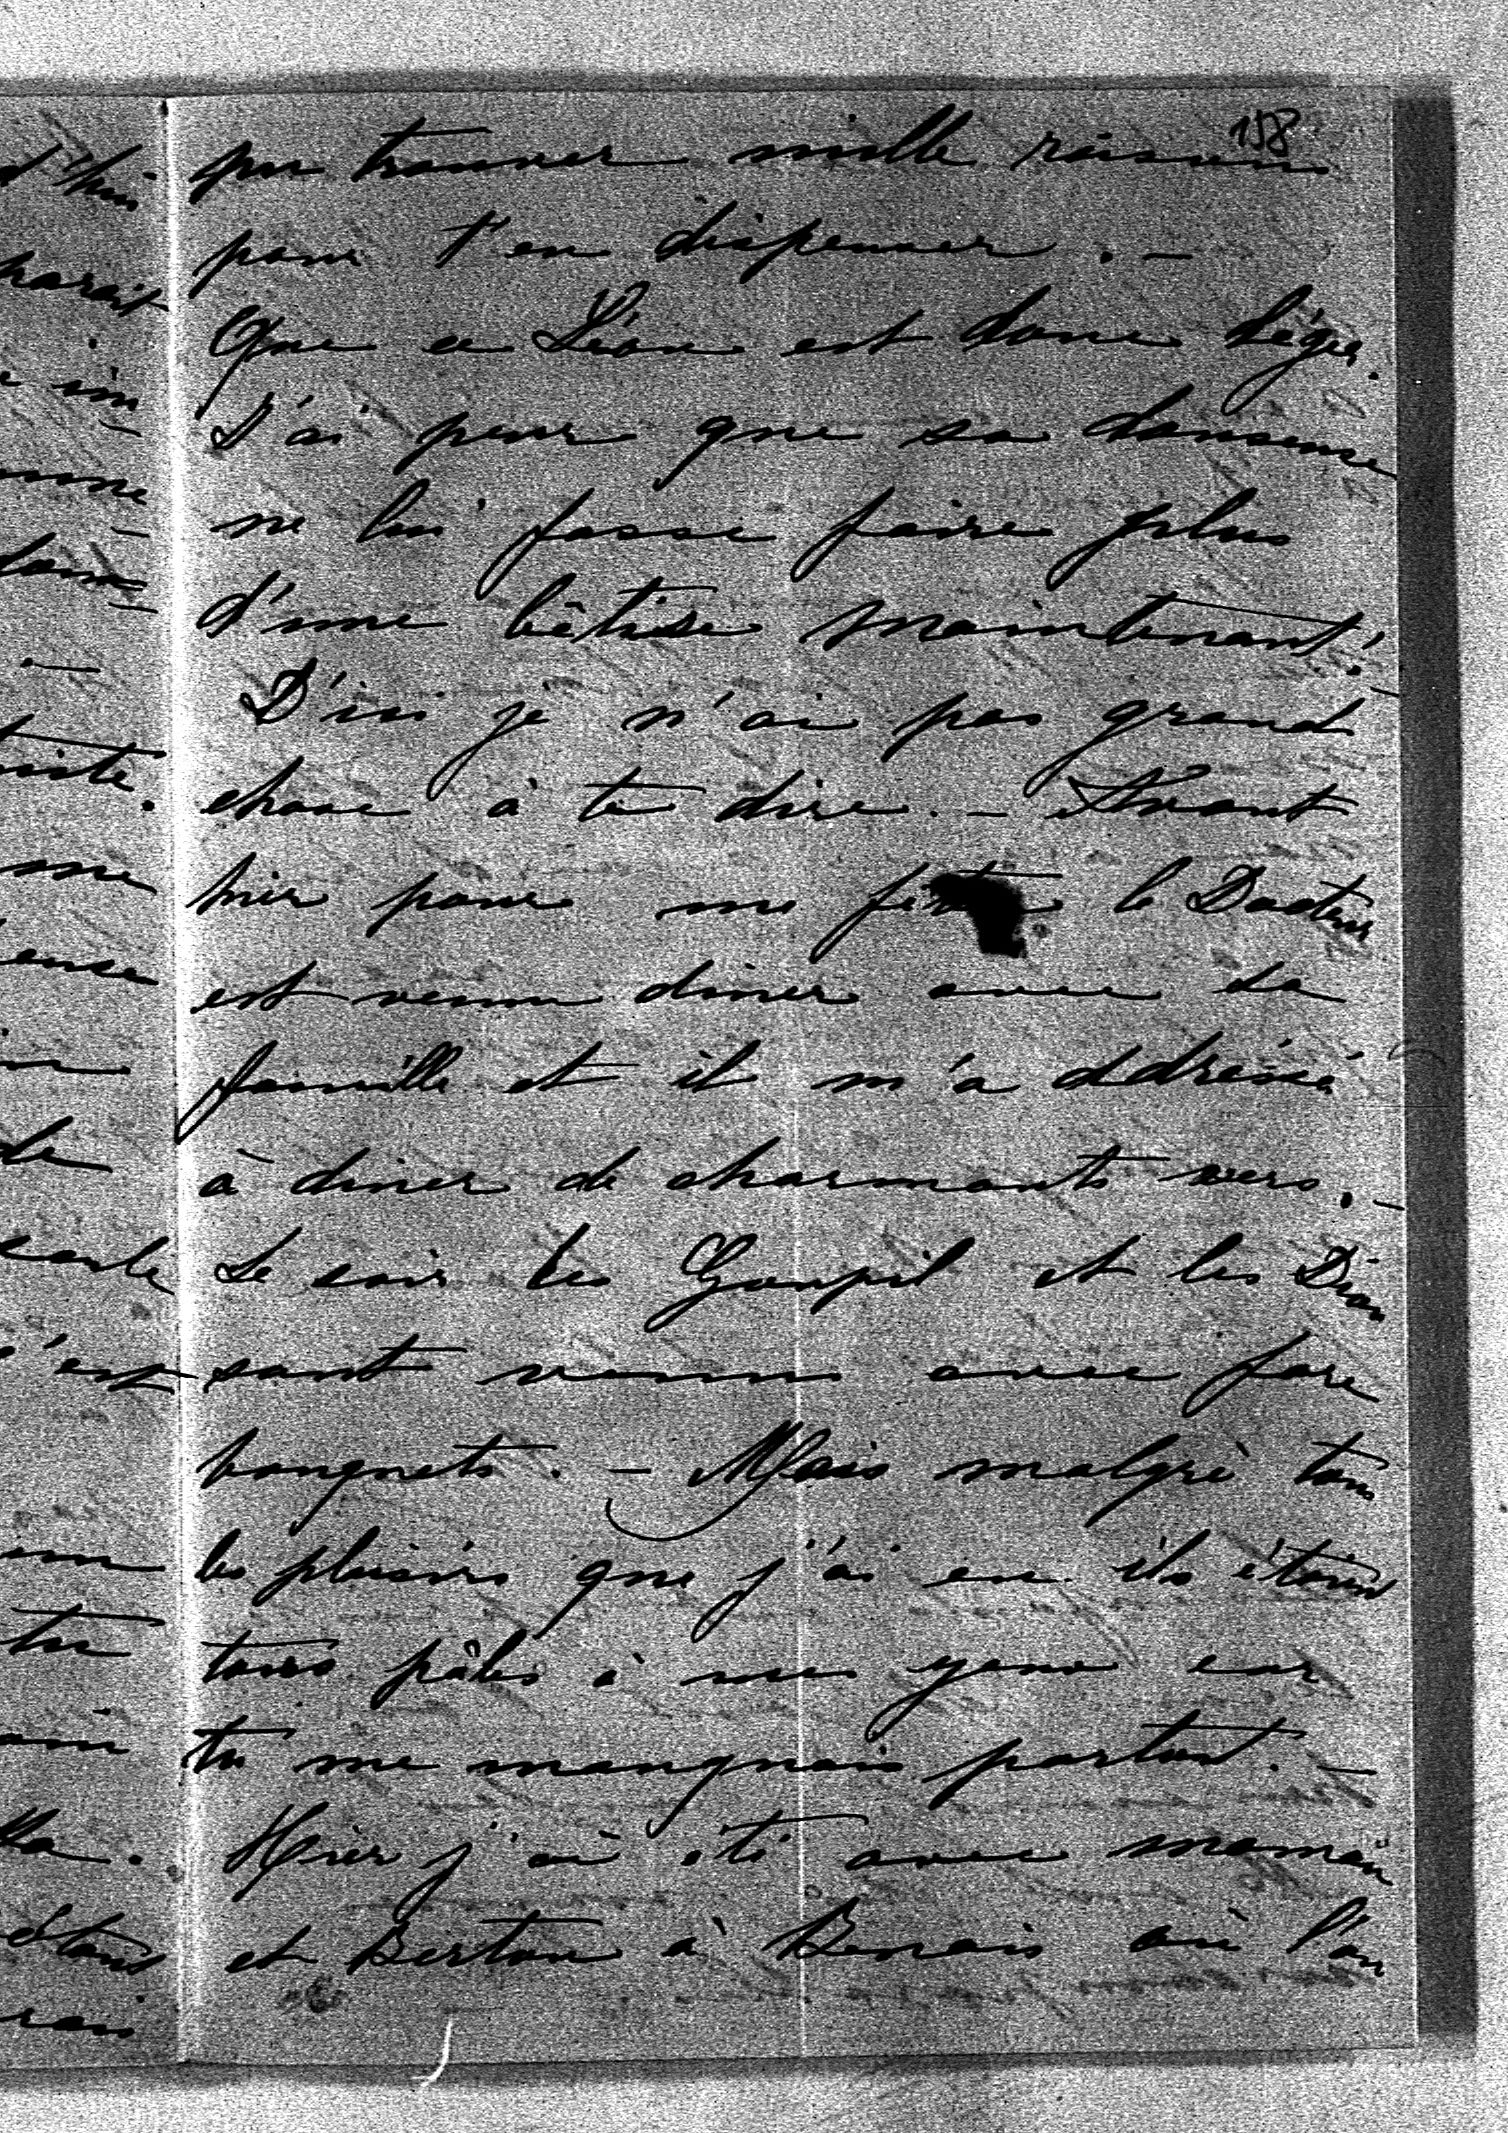 158
pu trouver mille raisons
pour t'en dispenser. -
Que ce Léon est donc léger.
J'ai peur que sa danseuse
ne lui fasse faire plus
d'une bêtise maintenant! -
D'ici je n'ai pas grand
chose à te dire. - Avant
hier pour me le Docteur
est venu diner avec sa
famille et il m'a addressé
à diner de charmants vers. -
Le soir les Goupil et les
sont venus avec force
bouquets. - Mais malgré tous
les plaisirs que j'ai eu ils étaient
tous pâles à mes yeux car
tu me manquais partout. -
Hier j'ai été avec maman
et Berton à Benais où l'on